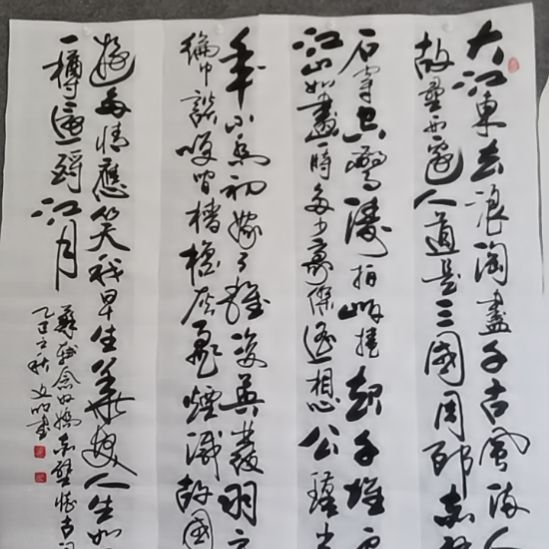 大江東去浪淘盡千古風流人
故壘西邊人道是三國周郎赤壁
石穿空驚濤拍岸捲起千堆
江山如畫一時多少豪傑遙想公瑾當
年小喬初嫁了雄姿英發羽
綸巾談笑間檣櫓灰飛煙滅故國
遊多情應笑我早生華髮人生如
一樽還酹江月
蘇軾念奴嬌赤壁懷古詞
乙巳之秋